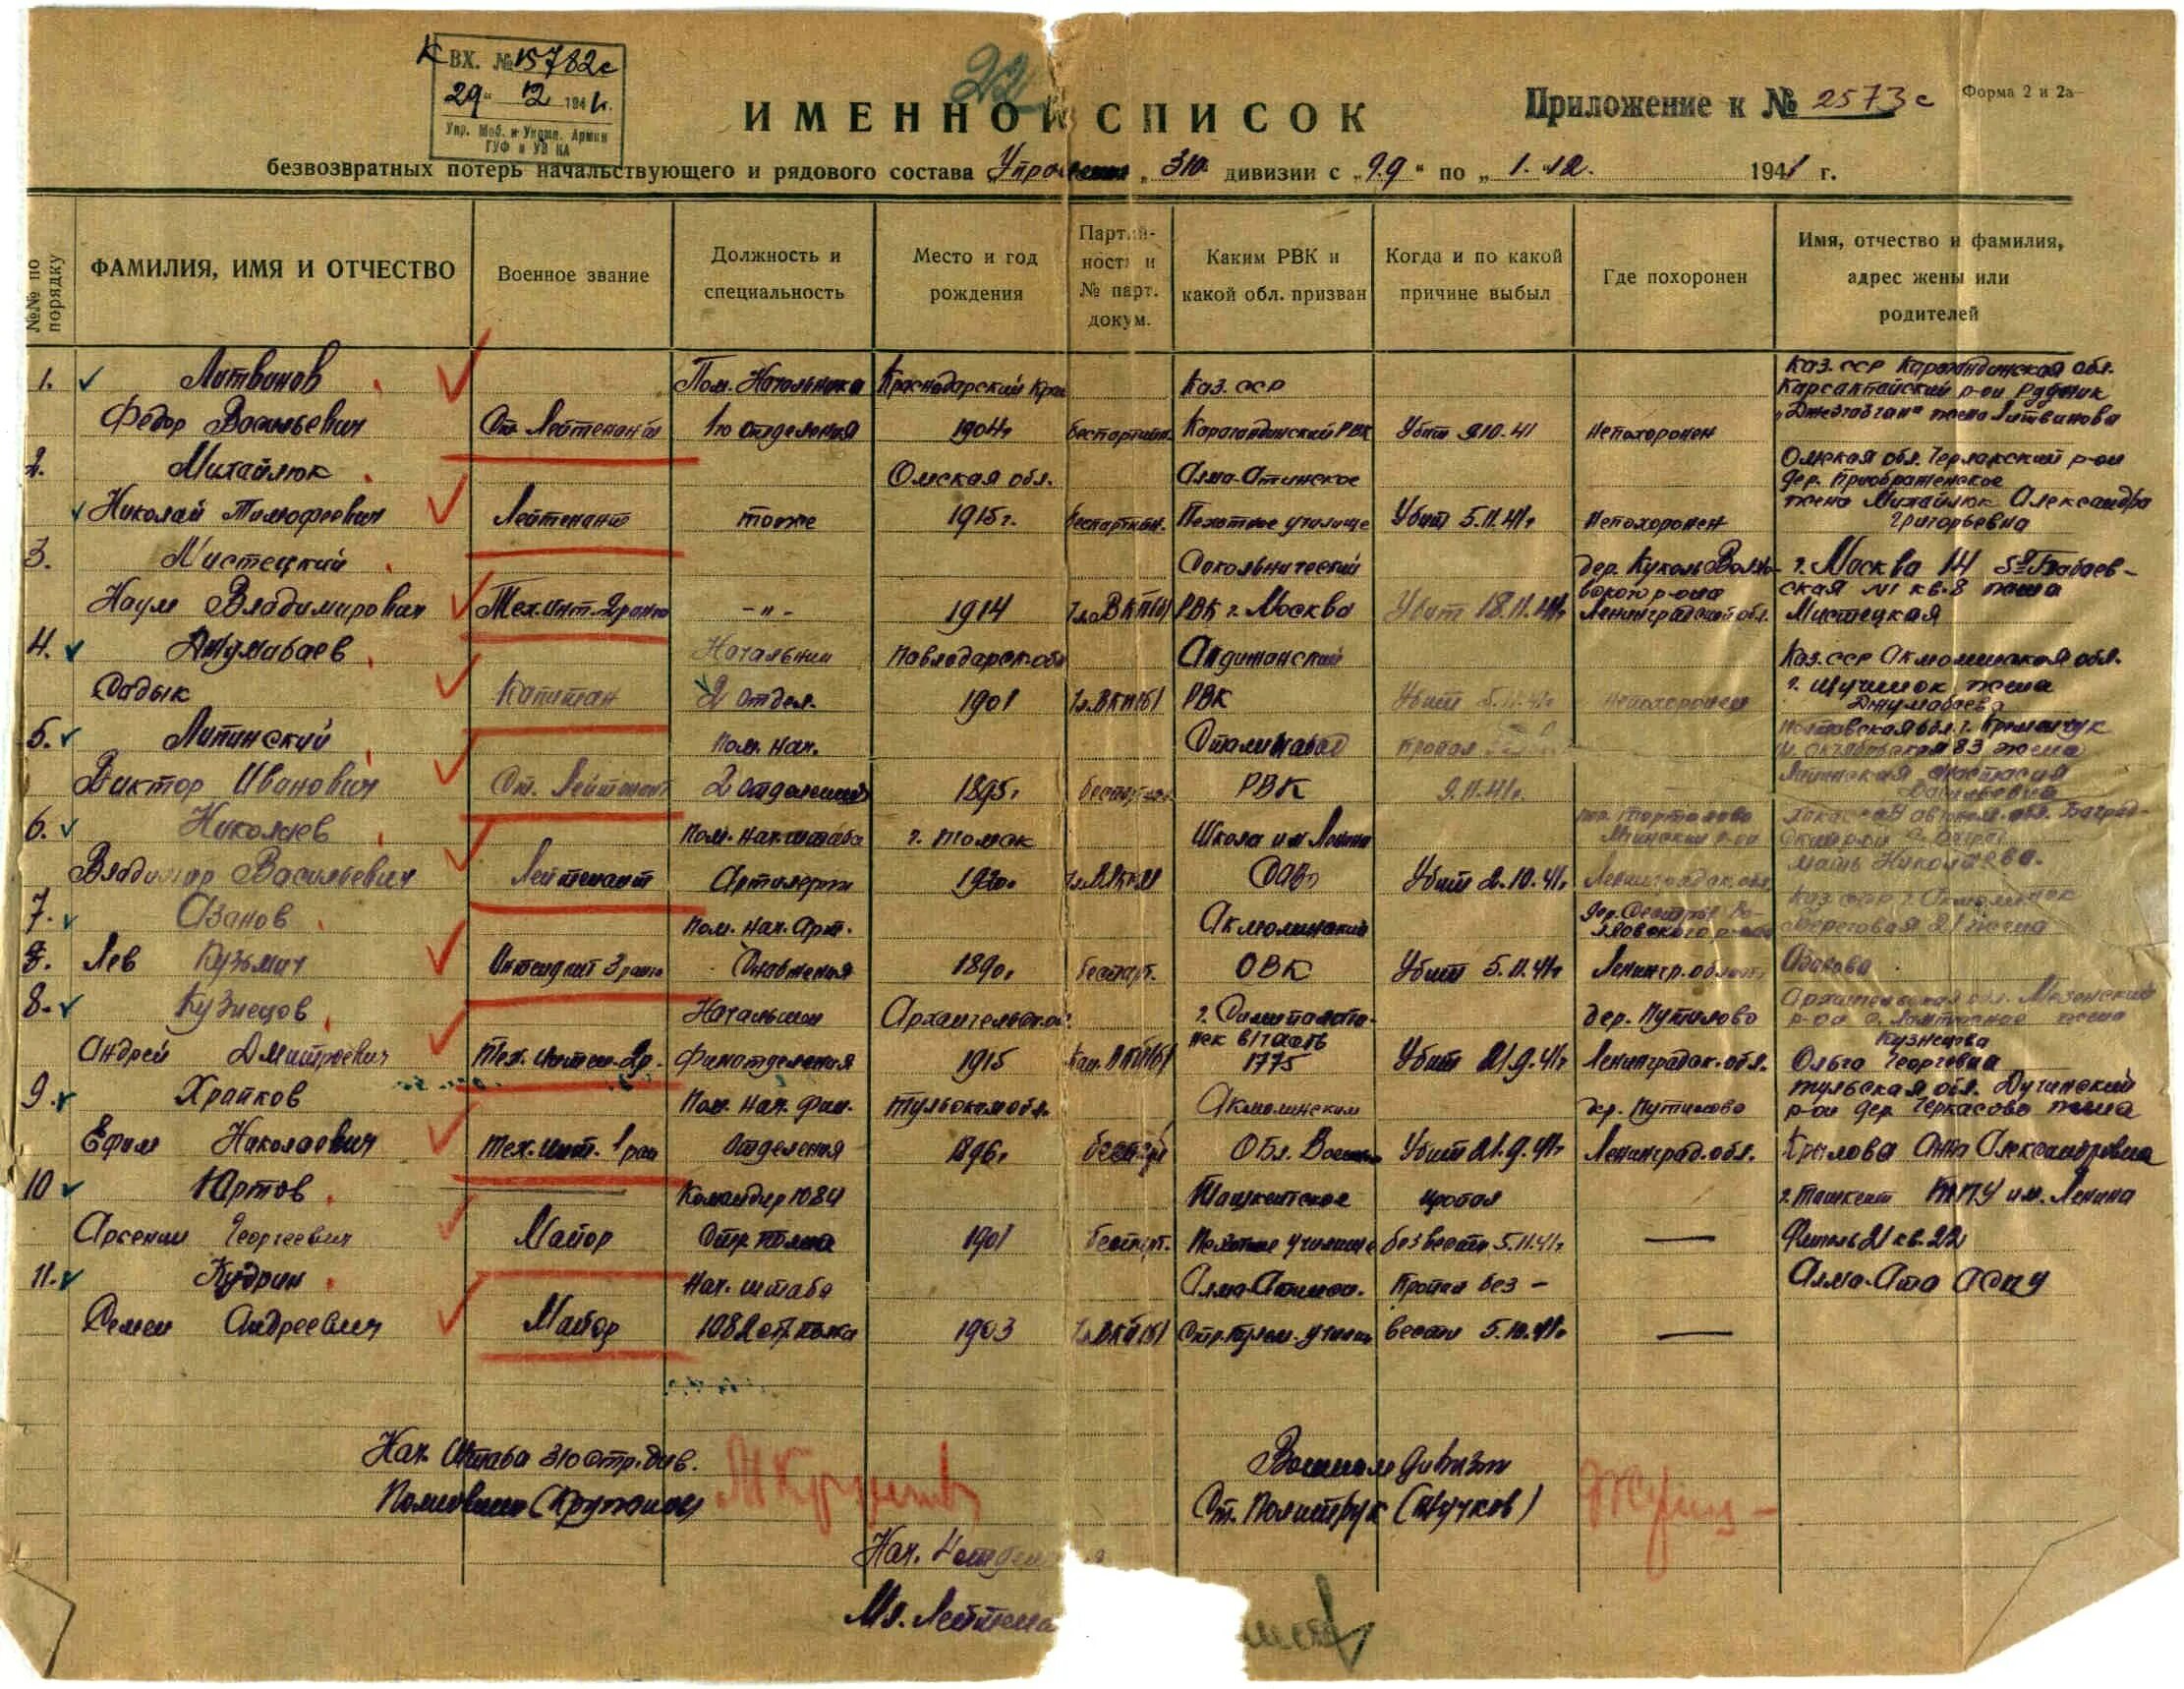 К ВХ. № 15782с
29 12 1941 г.
Упр. Моб. и Укомп. Армии
ГУФ и УВ КА
22
ИМЕННОЙ СПИСОК
Приложение к № 2573с
Форма 2 и 2а
безвозвратных потерь начальствующего и рядового состава „ „ 310 дивизии с „9.9“ по „ 1.12. 1941 г.
№№ по порядку
ФАМИЛИЯ, ИМЯ И ОТЧЕСТВО
Военное звание
Должность и
специальность
Место и год
рождения
Партий-
ность и
№ парт.
докум.
Каким РВК и
какой обл. призван
Когда и по какой
причине выбыл
Где похоронен
Имя, отчество и фамилия,
адрес жены или
родителей
1. Литвинов Пом. Начальника Краснодарский Край Каз. сср Каз. сср Карагандинская обл.
Карсакпайский р-он Рудник
Федор Васильевич Ст. Лейтенант 1го отделения 1904г беспартийн. Карагандинский РВК Убит 9.10.41 Непохоронен „Джезказган“ жена Литвинова
2. Михайлюк Омская обл. Алма-Атинское Омская обл. Черлакский р-он
дер. Преображенское
Николай Тимофеевич Лейтенант тоже 1915г. беспартийн. Пехотное училище Убит 5.11.41г Непохоронен жена Михайлюк Александра
Григорьевна
3. Мистецкий Сокольнический дер. Куколь Волхо- г. Москва 14 5я
вского р-она ская №1 кв. 8 жена
Наум Владимирович Тех. инт. 2 ранга -"- 1914 Чл. ВКП(б) РВК г. Москва Убит 18.11.41г Ленинградской обл. Мистецкая
4. Джумабаев Начальник Павлодарск. обл Андижанский Каз. сср Акмолинская обл.
Садык Капитан 2 отдел. 1901 Чл. ВКП(б) РВК Убит 5.11.41г непохоронен г. Щучинск жена
Джумабаева
5. Липинский Пом. нач. Сталинабад пропал Полтавская обл. г. Кременчук
83 жена
Виктор Иванович Ст. Лейтенант 2 отделения 1895г беспарт. РВК 9.11.41г. Липинская Анастасия
Васильевна
6. Николаев Пом. нач. штаба г. Томск Школа им Ленина Хакасская автоном. обл.
Мгинский р-он
Владимир Васильевич Лейтенант Артилерии 1920г САВО Убит 2.10.41г Ленинградск. обл. мать Николаева.
7. Азанов Пом. нач. Арт. Акмолинский Каз. сср г. Акмолинск
Береговая 21 жена
8. Лев Кузьмич Интендант 3 ранга Снабжения 1890г беспарт. ОВК Убит 5.11.41г Ленингр. области Азанова
8. Кузнецов Начальник Архангельск. г. Семипалатин- дер. Путилово Архангельская обл. Мезенский
ск в/часть р-он жена
Кузнецова
Андрей Дмитриевич Тех. интен. 2р. Финотделения 1915 Кан. ВКП(б) 1775 Убит 21.9.41г Ленинградск. обл. Ольга Георгевна
9. Храпков Пом. нач. фин. Тульская обл. Акмолинским дер. Путилово тульская обл.
р-он дер Черкасово жена
Ефим Николаевич Тех. инт. 1 ран отделения 1896г беспарт Обл. Воен. Убит 21.9.41г Ленинград. обл. Крылова Анна Александровна
10 Юртов Командир 1084 Ташкентское пропал г. Ташкент ТПУ им. Ленина
Арсений Георгеевич Майор Стр. полка 1901 беспарт. Пехотное училище без вести 5.11.41г — 21 кв. 22
11. Кудрин Нач. штаба Алма-Атинск. Пропал без - Алма-Ата
Семен Андреевич Майор 1082 стр. полка 1903 Чл. ВКП(б) Стр. пулем. училищ вести 5.10.41г —
Нач. Штаба 310 стр. див. Военком дивизии
Полковник Ст. Политрук
Нач. 4
Мл. Лейтена